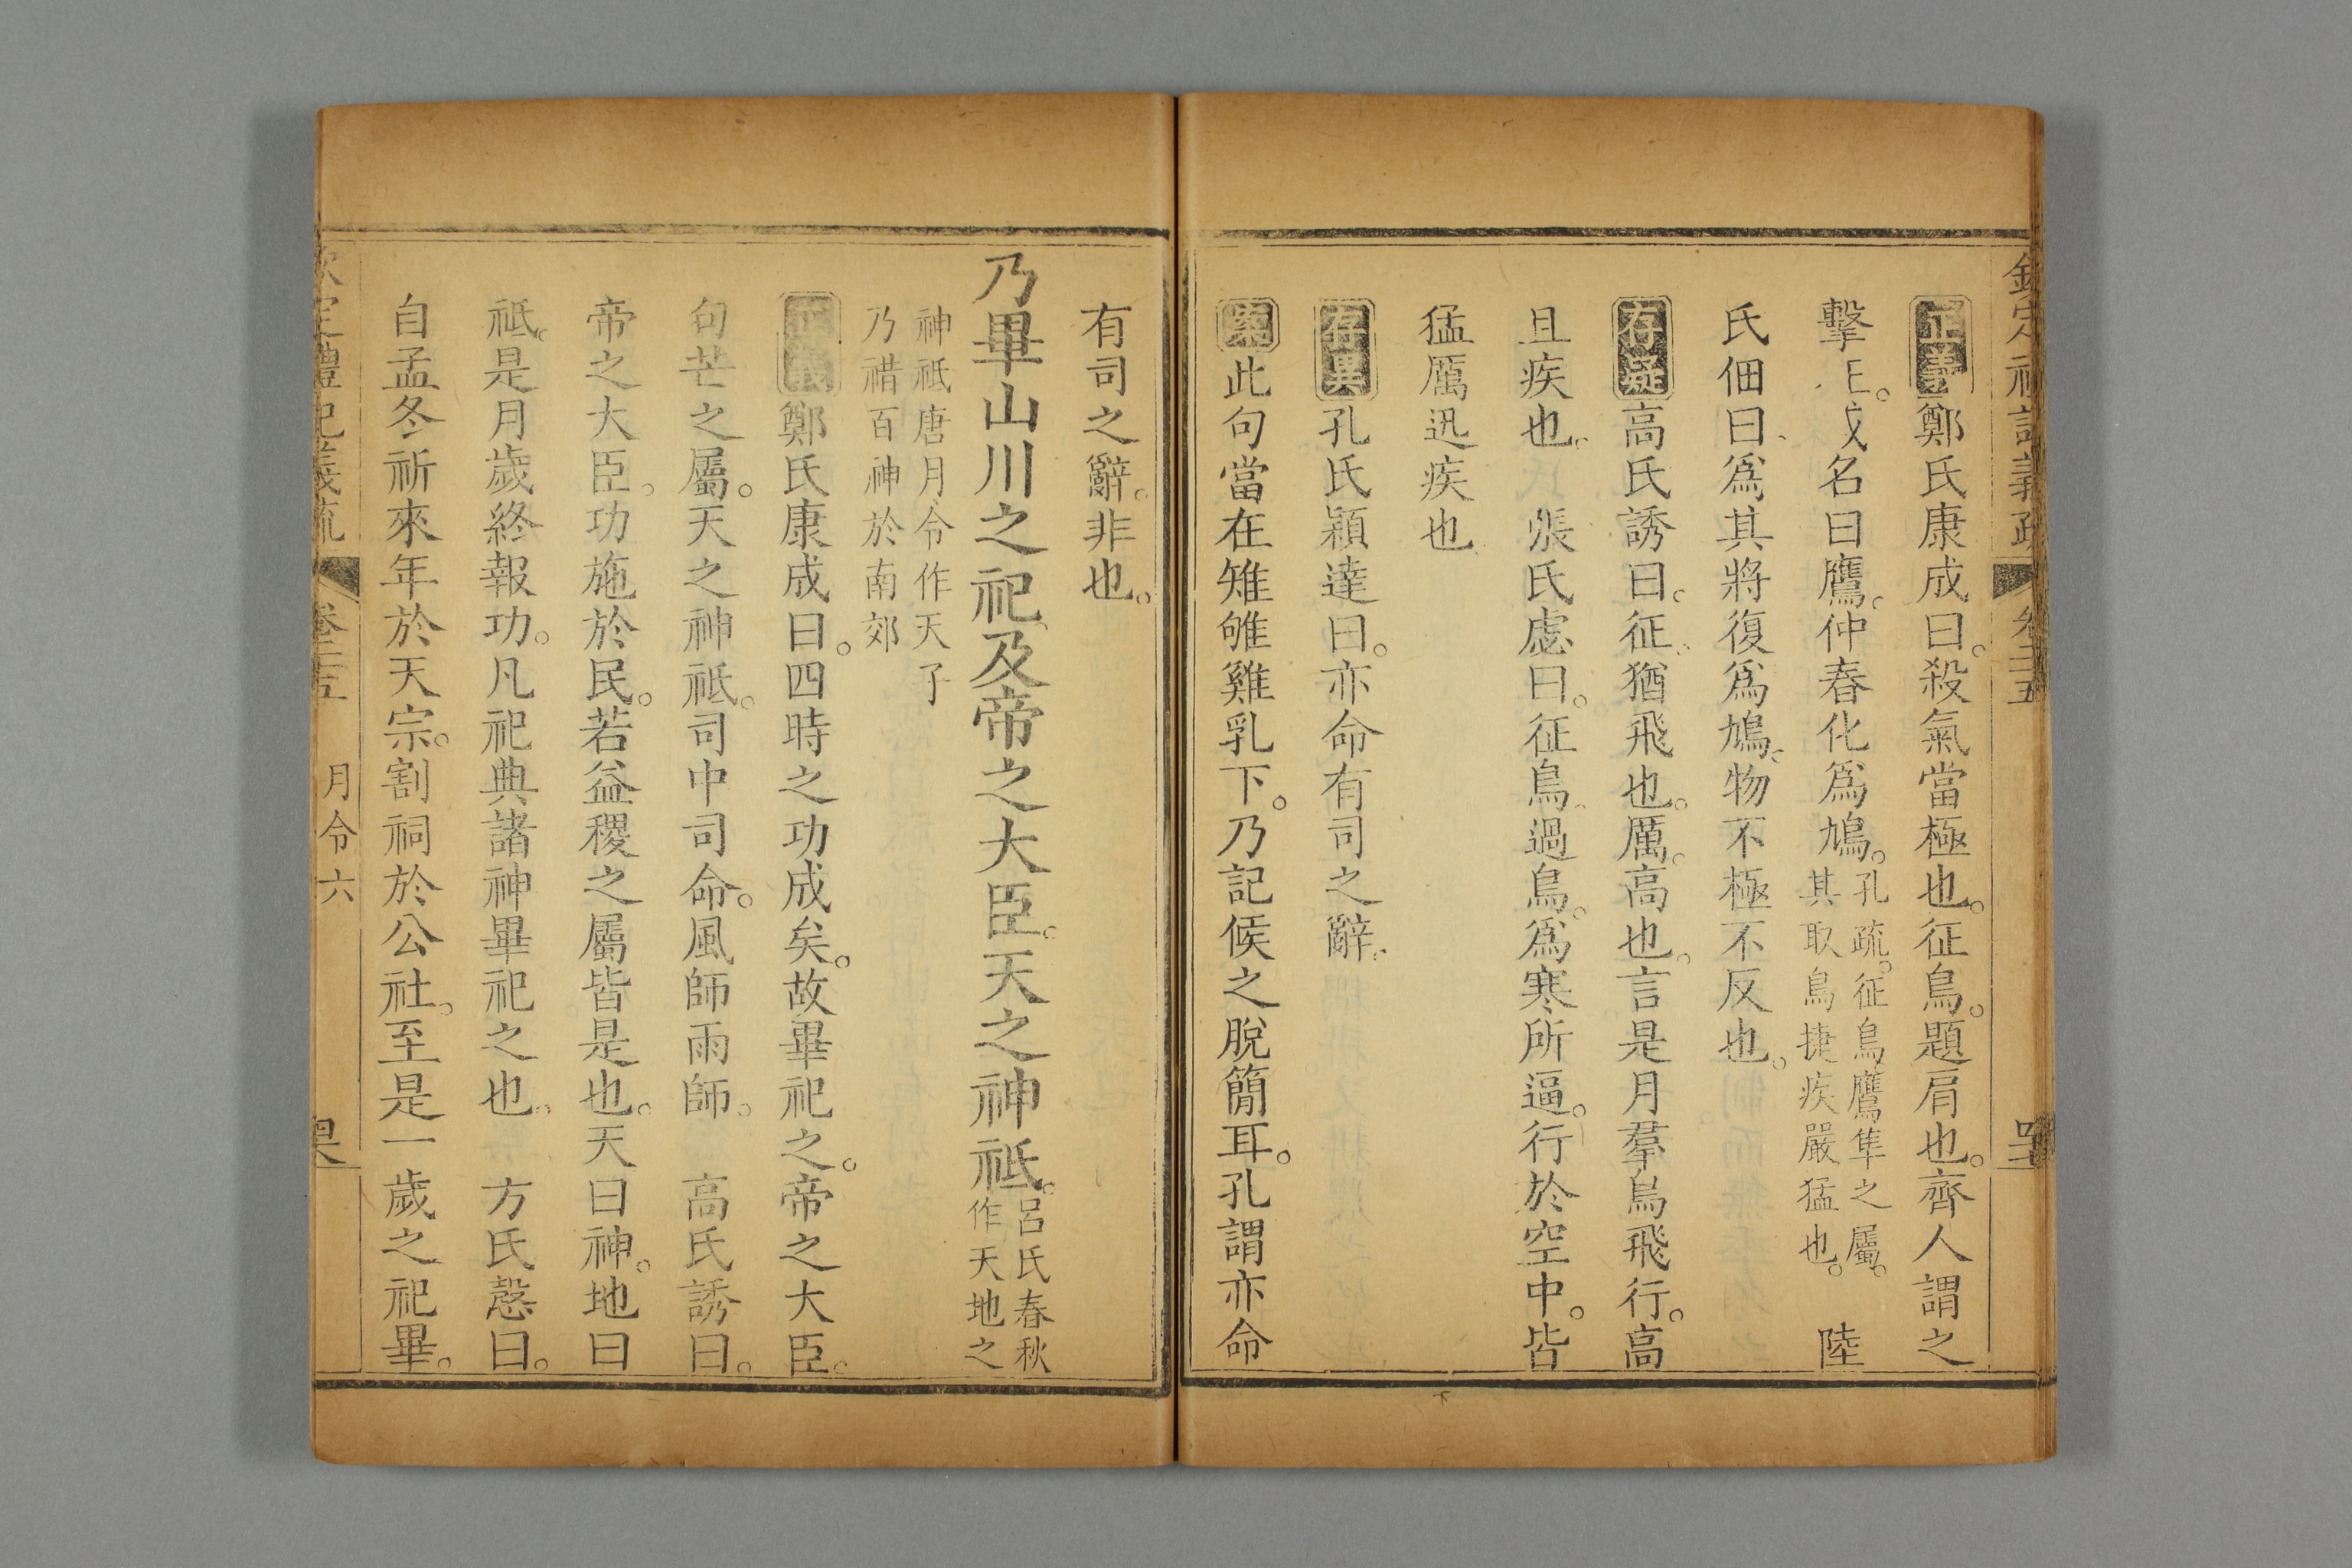 正義鄭氏康成曰。殺氣當極也。征鳥。題肩也。齊人謂之
擊征。或名曰鷹。仲春化爲鳩。孔疏。征鳥。鷹隼之屬。其取鳥捷疾嚴猛也。 陸
氏佃曰、爲其將復爲鳩。物不極不反也。
存疑高氏誘曰。征。猶飛也。厲。高也。言是月羣鳥飛行。高
且疾也。 張氏慮曰。征鳥。過鳥。爲寒所逼。行於空中。皆
猛厲迅疾也
存異孔氏穎達曰。亦命有司之辭。
案此句當在雉雊雞乳下。乃記候之脫簡耳。孔謂亦命
有司之辭。非也。
乃畢山川之祀。及帝之大臣。天之神祗。呂氏春秋作天地之
神祗唐月令作天子乃禩百神於南郊
正義鄭氏康成曰。四時之功成矣。故畢祀之。帝之大臣。
句芒之屬。天之神祗。司中司命。風師雨師。 高氏誘曰。
帝之大臣。功施於民。若益稷之屬皆是也。天曰神。地曰
祗。是月歲終報功。凡祀典諸神畢祀之也。 方氏慤曰。
自孟冬祈來年於天宗。割祠於公社。至是一歲之祀畢。
欽定禮記義疏 卷二十五 月令六